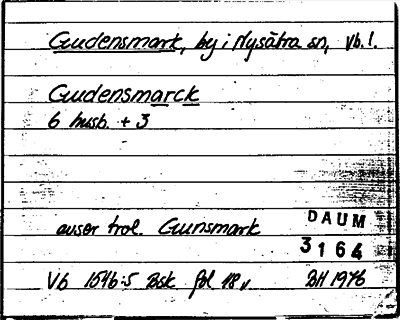 Gudensmark, by i Nysätra sn, Vb.l.
Gudensmarck
6 husb. + 3
avser trol. Gunsmark
DAUM
3164
Vb 1546:5 Bsk fol 18 v BH 1976